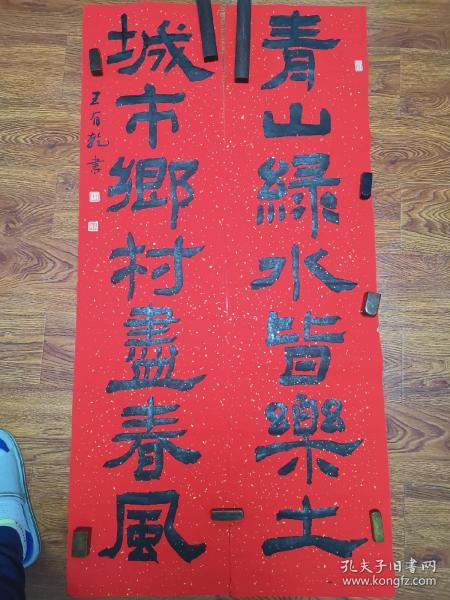 青山綠水皆樂土
城市鄉村盡春風
王有乾書
孔夫子旧书网
www.kongfz.com